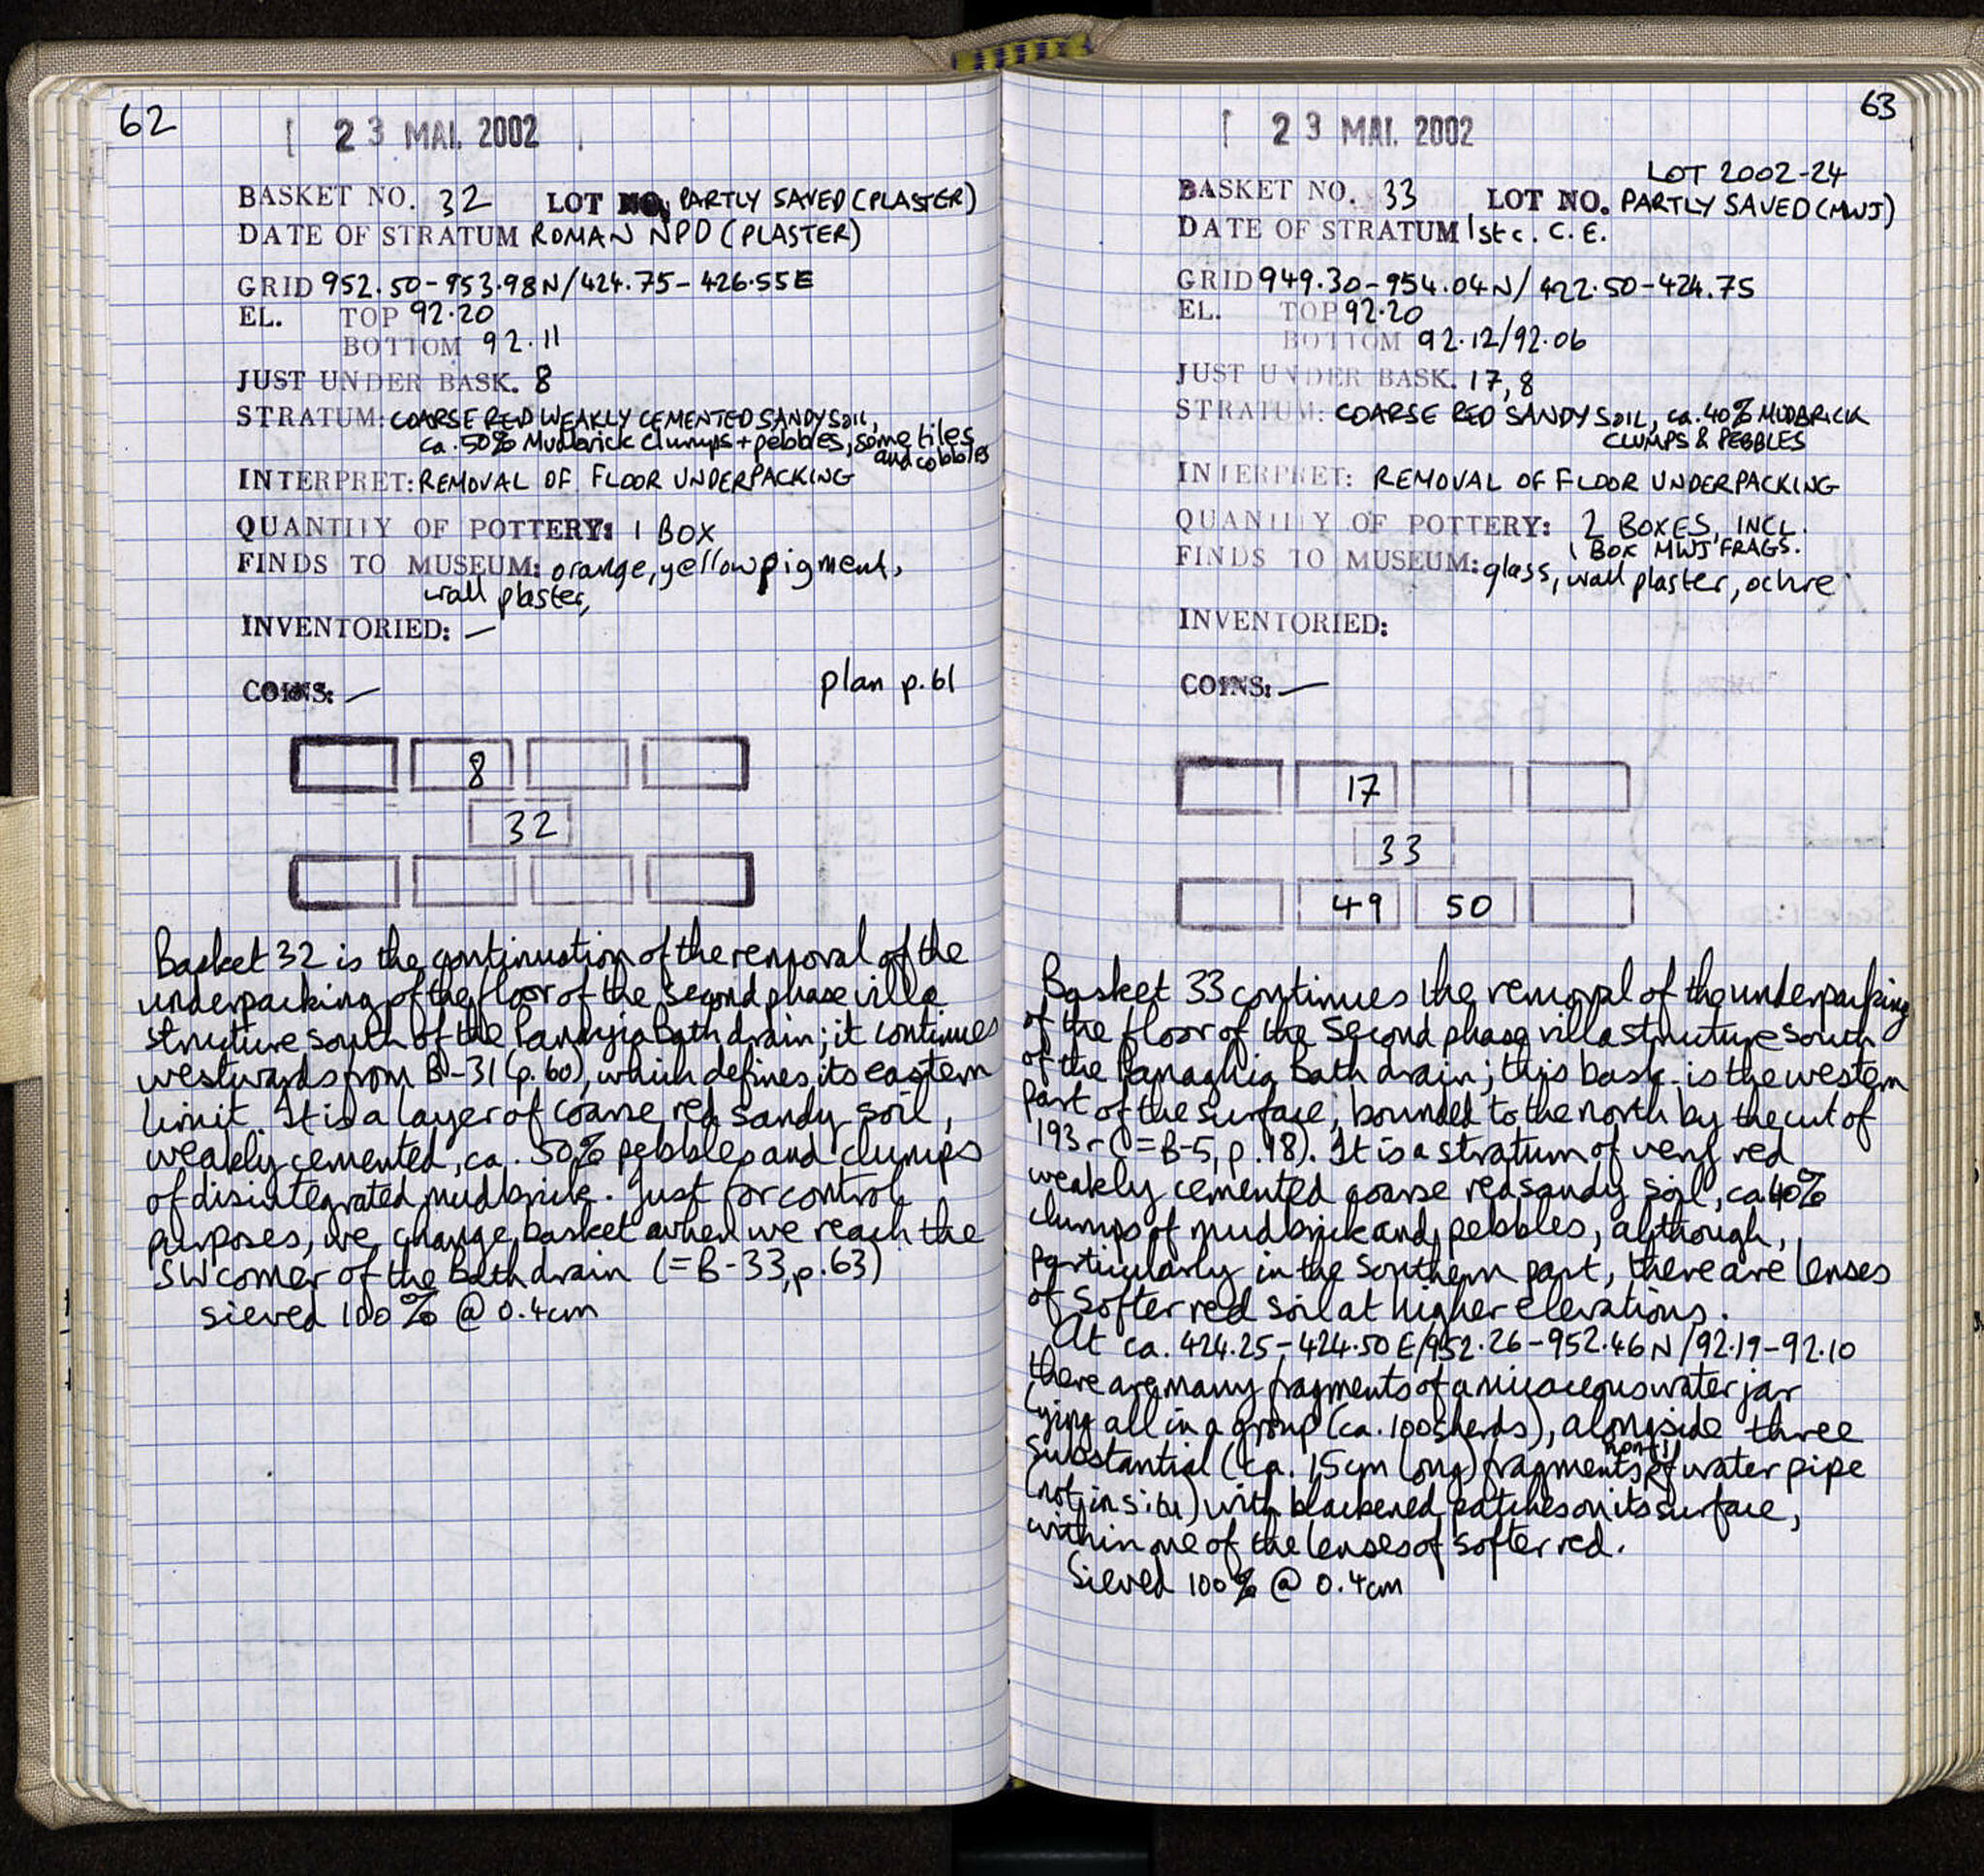 62
23 MAI. 2002
BASKET NO. 32 LOT NO. PARTLY SAVED (PLASTER)
DATE OF STRATUM ROMAN NPD (PLASTER)
GRID 952.50-953.98N/424.75-426.55E
EL. TOP 92.20
BOTTOM 92.11
JUST UNDER BASK. 8
STRATUM: COARSE RED WEAKLY CEMENTED SANDY SOIL,
ca. 50% Mudbrick clumps + pebbles, some tiles
and cobbles
INTERPRET: REMOVAL OF FLOOR UNDERPACKING
QUANTITY OF POTTERY: 1 BOX
FINDS TO MUSEUM: orange, yellow pigment,
wall plaster,
INVENTORIED: —
COINS: —
plan p.61
8
32
Basket 32 is the continuation of the removal of the
underpacking of the floor of the second phase villa
structure south of the Panayia Bath drain; it continues
westwards from B-31 (p.60), which defines its eastern
limit. It is a layer of coarse red sandy soil,
weakly cemented, ca. 50% pebbles and clumps
of disintegrated mudbrick. Just for control
purposes, we change basket when we reach the
SW corner of the Bath drain (=B-33, p.63)
sieved 100% @ 0.4cm
63
23 MAI. 2002
LOT 2002-24
BASKET NO. 33 LOT NO. PARTLY SAVED (MWJ)
DATE OF STRATUM 1st c. C.E.
GRID 949.30-954.04N/422.50-424.75
EL. TOP 92.20
BOTTOM 92.12/92.06
JUST UNDER BASK. 17, 8
STRATUM: COARSE RED SANDY SOIL, ca. 40% MUDBRICK
CLUMPS & PEBBLES
INTERPRET: REMOVAL OF FLOOR UNDERPACKING
QUANTITY OF POTTERY: 2 BOXES, INCL.
1 BOX MWJ FRAGS.
FINDS TO MUSEUM: glass, wall plaster, ochre
INVENTORIED:
COINS: —
17
33
49 50
Basket 33 continues the removal of the underpacking
of the floor of the Second phase villa structure south
of the Panaghia Bath drain; this bask. is the western
part of the surface, bounded to the north by the cut of
193 (=B-5, p.18). It is a stratum of very red
weakly cemented coarse red sandy soil, ca 40%
clumps of mudbrick and pebbles, although,
particularly in the Southern part, there are lenses
of softer red soil at higher elevations.
At ca. 424.25-424.50 E/952.26-952.46N/92.19-92.10
there are many fragments of a micaceous water jar
lying all in a group (ca. 100 sherds), alongside three
substantial (ca. 15cm long) fragments of water pipe
(not in situ) with blackened patches on its surface,
within one of the lenses of softer red.
Sieved 100% @ 0.4cm